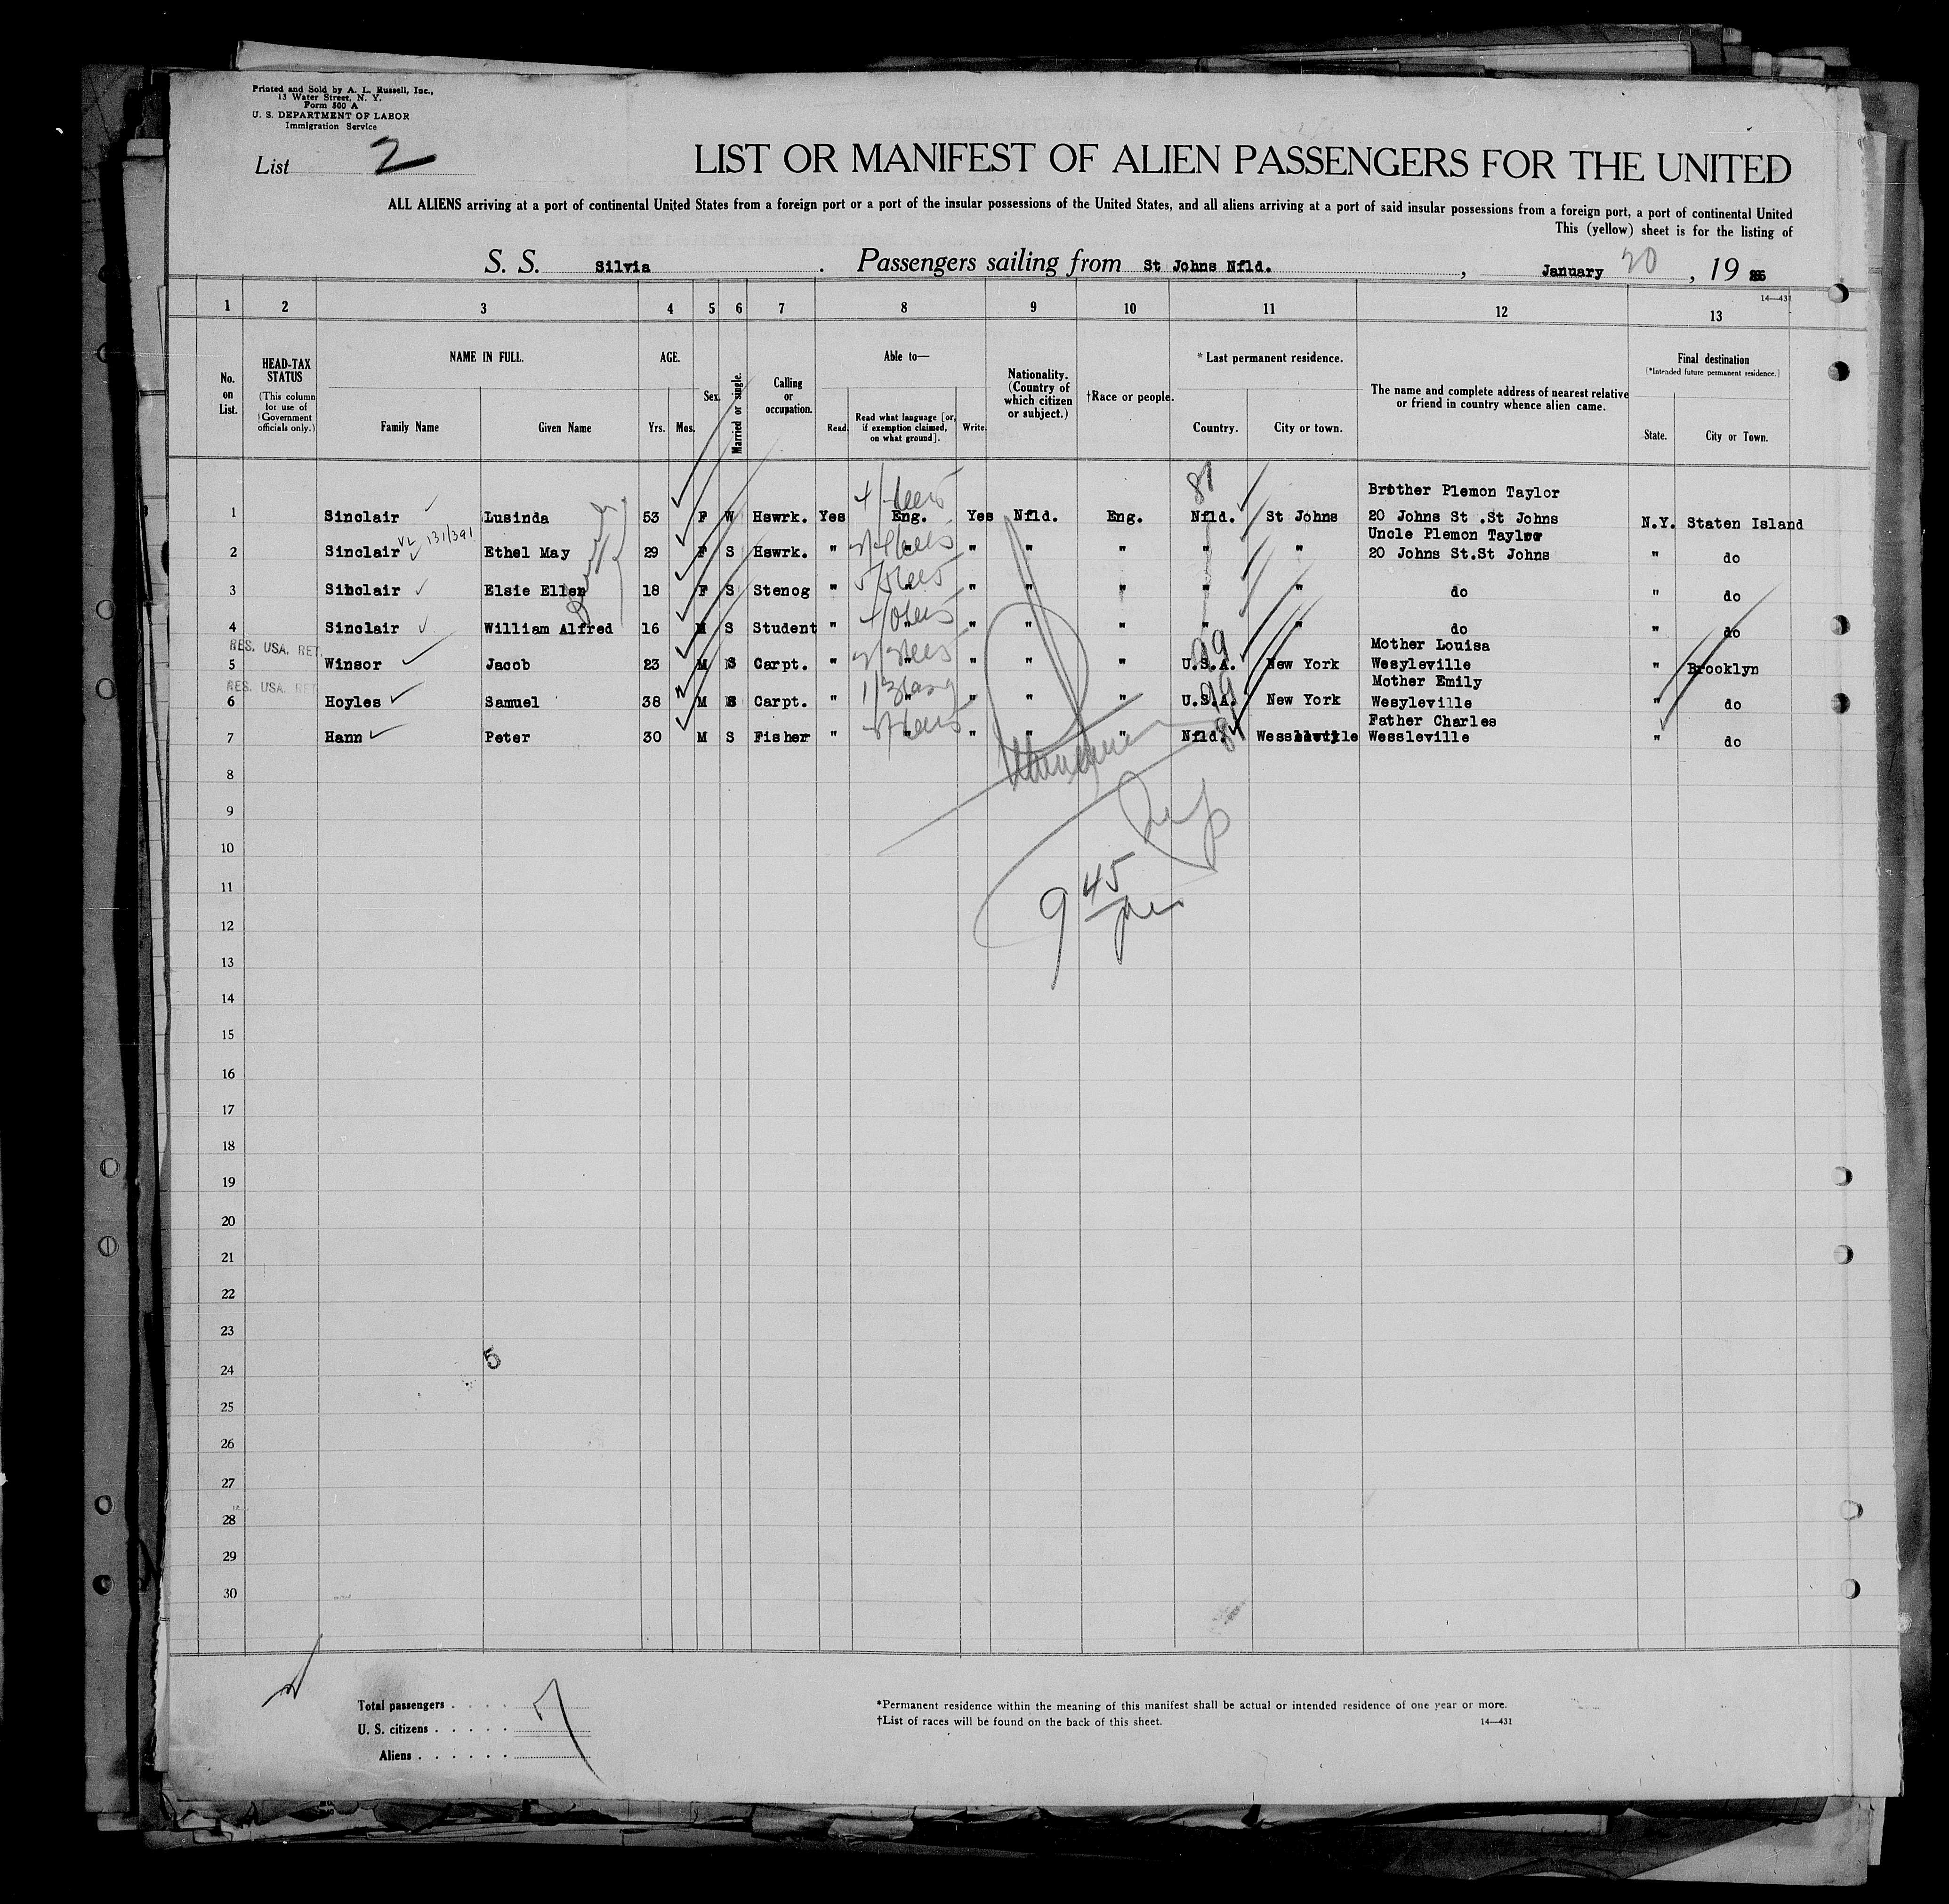 Printed and Sold by A. L. Russell, Inc.,
13 Water Street, N. Y.
Form 500 A
U. S. DEPARTMENT OF LABOR
Immigration Service
List 2
LIST OR MANIFEST OF ALIEN PASSENGERS FOR THE UNITED
ALL ALIENS arriving at a port of continental United States from a foreign port or a port of the insular possessions of the United States, and all aliens arriving at a port of said insular possessions from a foreign port, a port of continental United
This (yellow) sheet is for the listing of
S. S. Silvia . Passengers sailing from St Johns Nfld. , January 20 , 19
14—431
1 2 3 4 5 6 7 8 9 10 11 12 13
No. on List.
HEAD-TAX STATUS (This column for use of Government officials only.)
NAME IN FULL.
Family Name Given Name
AGE.
Yrs. Mos.
Sex.
Married or single.
Calling or occupation.
Able to—
Read. Read what language [or, if exemption claimed, on what ground]. Write.
Nationality. (Country of which citizen or subject.)
†Race or people.
* Last permanent residence.
Country. City or town.
The name and complete address of nearest relative or friend in country whence alien came.
Final destination
[*Intended future permanent residence.]
State. City or Town.
81
Brother Plemon Taylor
1 Sinclair Lusinda 53 F W Hswrk. Yes Eng. Yes Nfld. Eng. Nfld. St Johns 20 Johns St .St Johns N.Y. Staten Island
131/391
Uncle Plemon Taylor
2 Sinclair Ethel May 29 F S Hswrk. " " " " " " " 20 Johns St.St Johns " do
3 Sinclair Elsie Ellen 18 F S Stenog " " " " " " " do " do
4 Sinclair William Alfred 16 M S Student " " " " " " " do " do
RES. USA. RET.
99
Mother Louisa
5 Winsor Jacob 23 M S Carpt. " " " " " U.S.A. New York Wesyleville " Brooklyn
RES. USA. RET.
99
Mother Emily
6 Hoyles Samuel 38 M S Carpt. " " " " " U.S.A. New York Wesyleville " do
81
Father Charles
7 Hann Peter 30 M S Fisher " " " " " Nfld. Wessleville Wessleville " do
8
9
10
9 45
11
12
13
14
15
16
17
18
19
20
21
22
23
5
24
25
26
27
28
29
30
Total passengers . . . . 7
U. S. citizens . . . . .
Aliens . . . . . .
*Permanent residence within the meaning of this manifest shall be actual or intended residence of one year or more.
†List of races will be found on the back of this sheet.
14—431